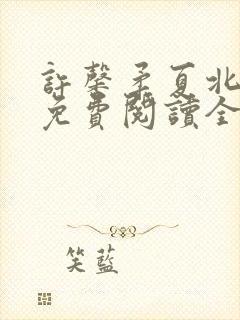 許馨矛夏北
免費閱讀全
笑藍